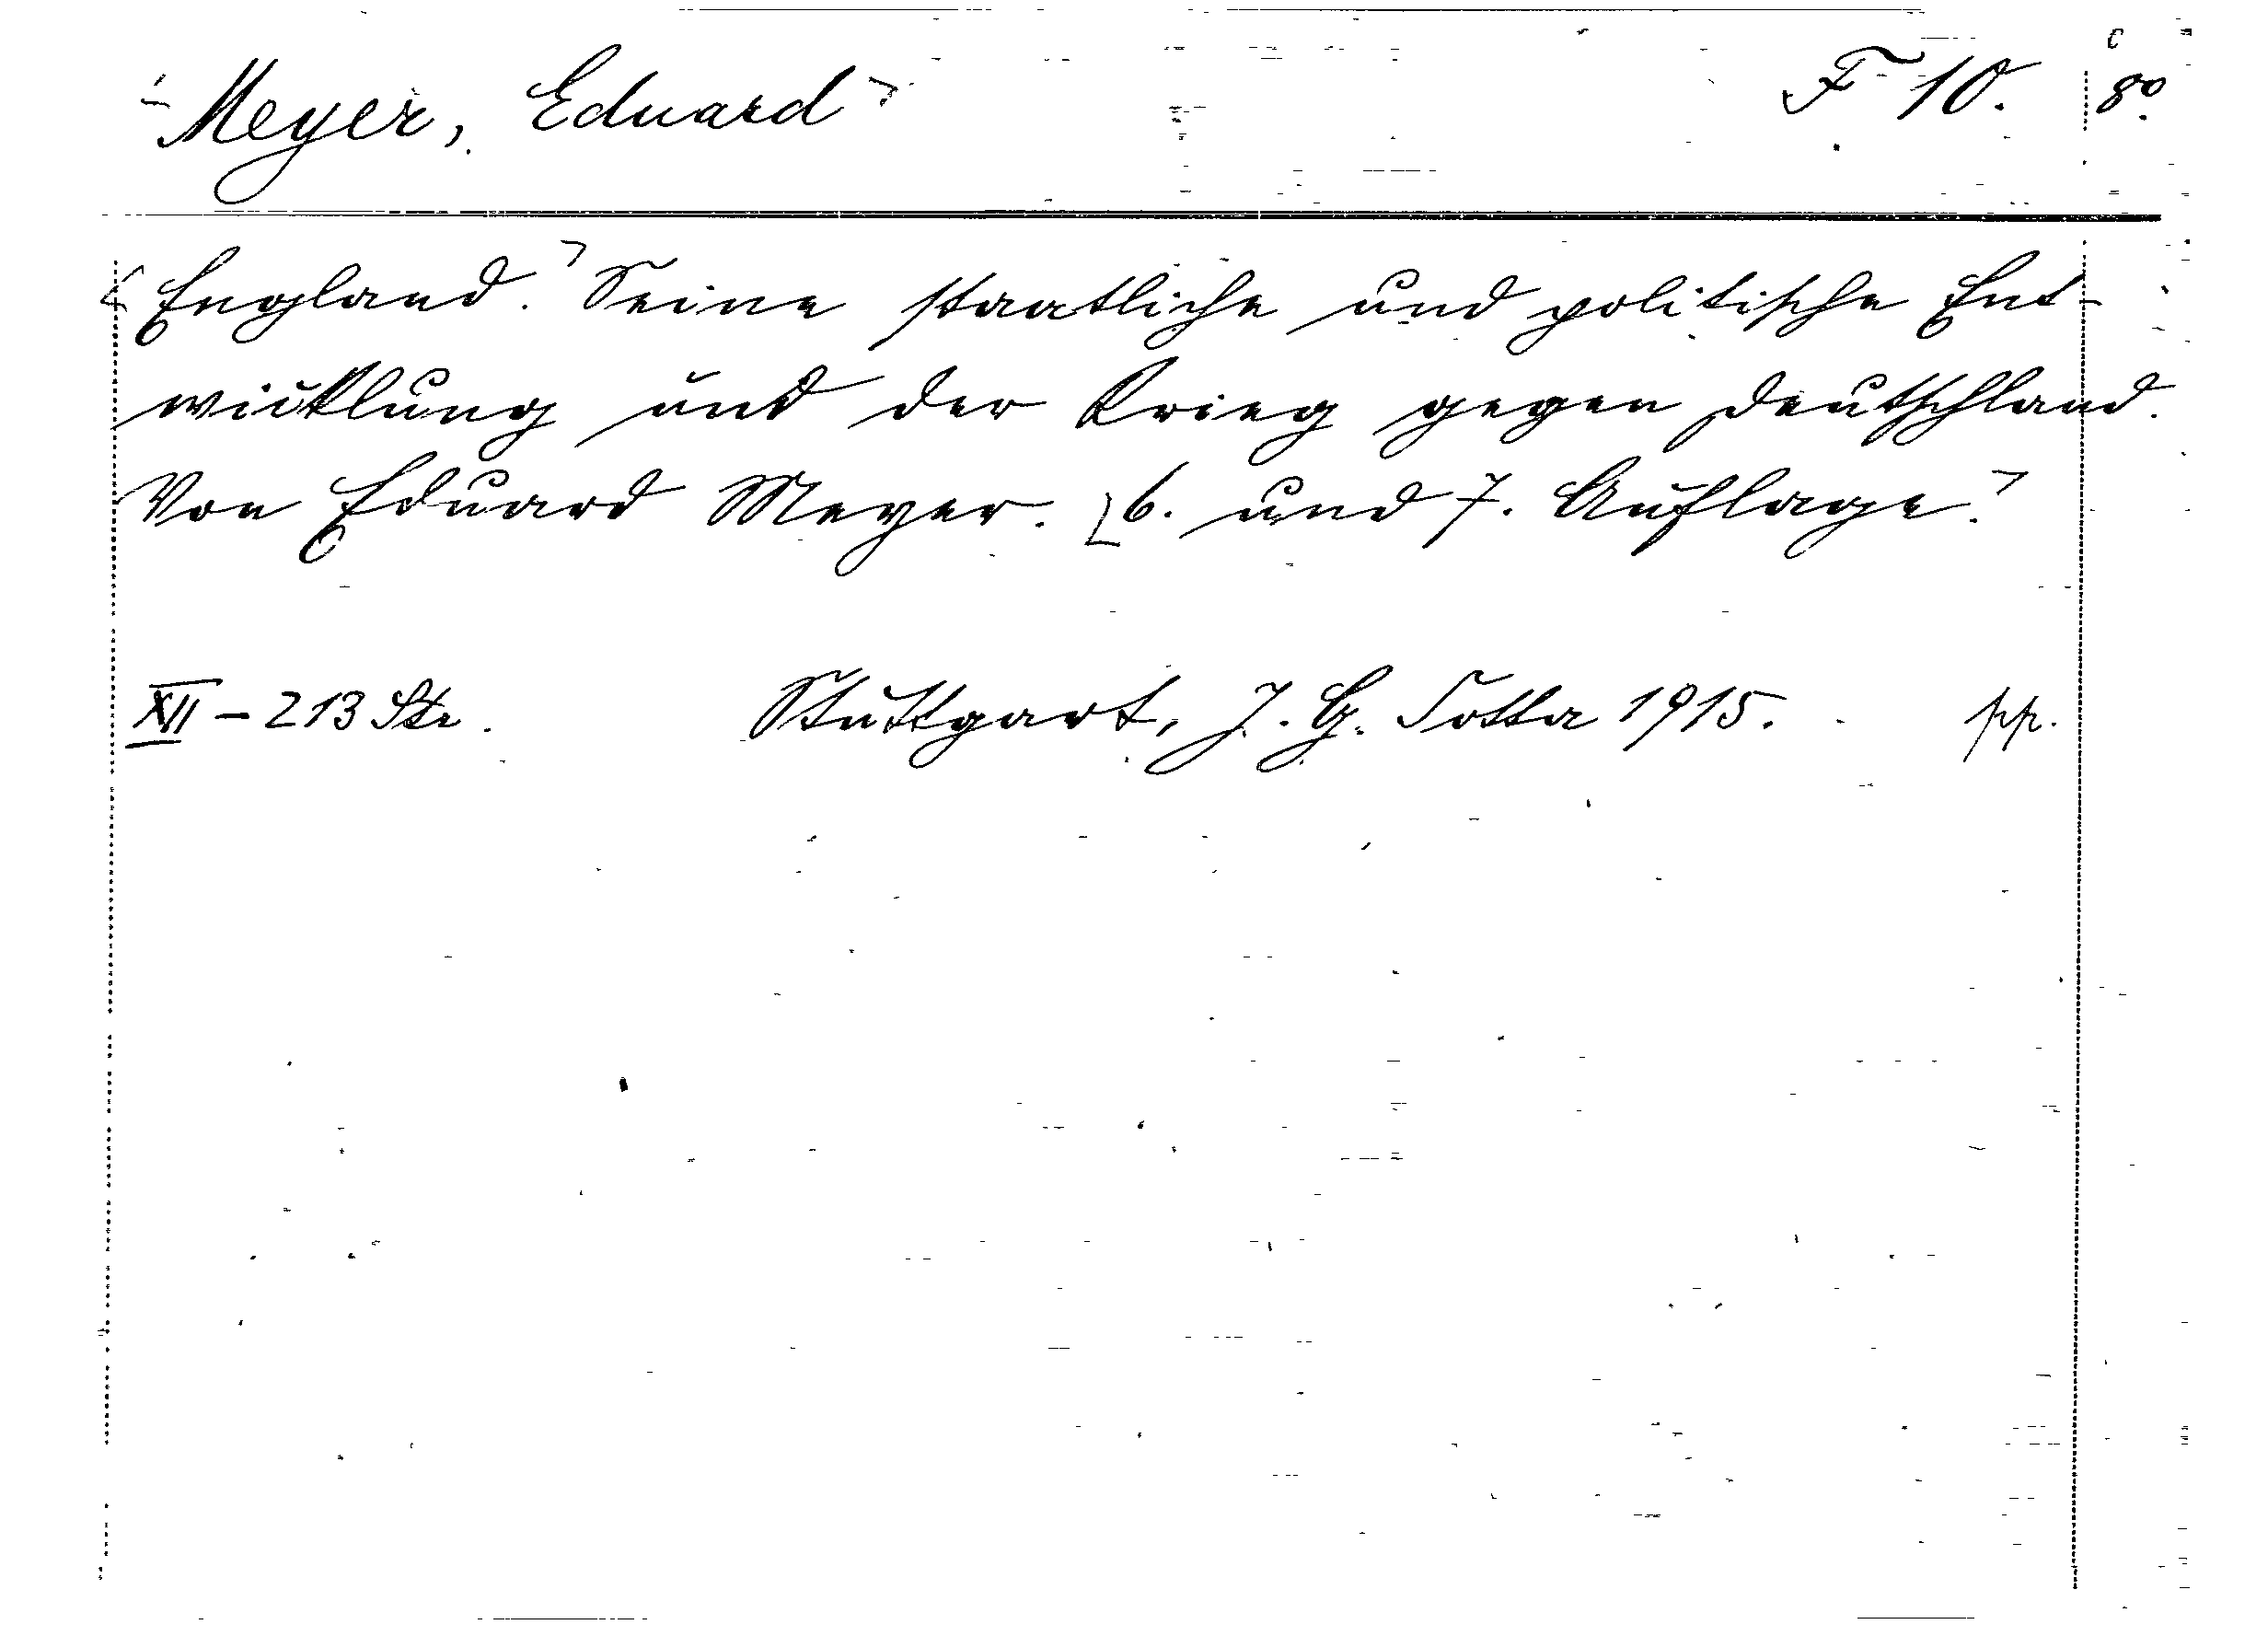 Meyer, Eduard F 10. 8°.
England. Seine staatliche und politische Ent-
wicklung und der Krieg gegen Deutschland.
Von Eduard Meyer. [6. und 7. Auflage.]
XII - 213 Str. Stuttgart, J. G. Cotta 1915. pp.